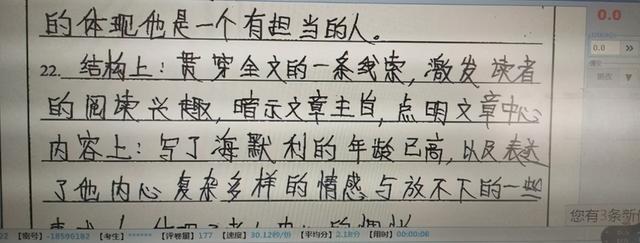 的体现他是一个有担当的人。
22. 结构上：贯穿全文的一条线索，激发读者
的阅读兴趣，暗示文章主旨，点明文章中心
内容上：写了海默利的年龄已高，以及表达
了他内心复杂多样的情感与放不下的一些
0.0
0.0
您有3条新
22 【密号】-18590182 【考生】****** 【评卷量】177 【速度】30.12秒/份 【平均分】2.18分 【用时】00:00:06